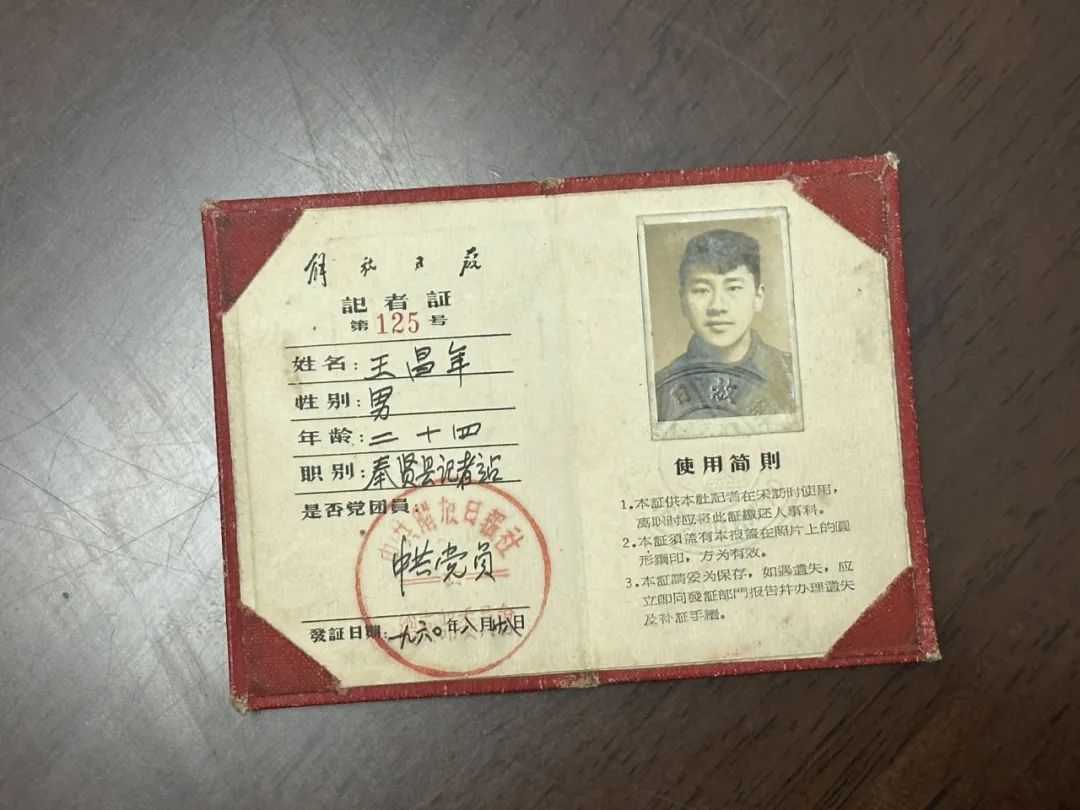 解放日报
記者証
第125号
姓名：王昌年
性别：男
年龄：二十四
职别：奉贤县记者站
是否党团員：
中共解放日报社
中共党员
發証日期：一九六〇年八月十八日
使用简則
1.本証供本社記者在采訪时使用，
离职时应将此証繳还人事科。
2.本証須盖有本报盖在照片上的圓
形鋼印，方为有效。
3.本証請妥为保存，如遇遺失，应
立即向發証部門报告并办理遺失
及补証手續。